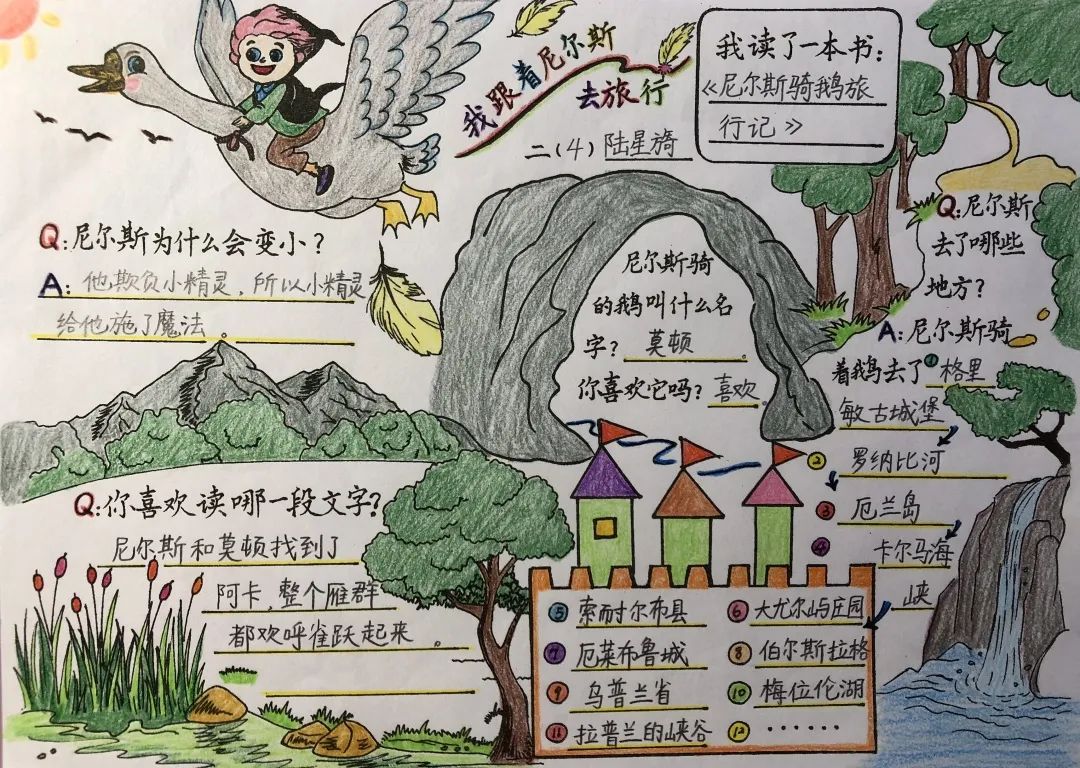 我跟着尼尔斯
去旅行
二(4) 陆星旖
我读了一本书:
《尼尔斯骑鹅旅
行记》
Q:尼尔斯为什么会变小?
A:他欺负小精灵,所以小精灵
给他施了魔法。
尼尔斯骑
的鹅叫什么名
字? 莫顿。
你喜欢它吗? 喜欢。
Q:尼尔斯
去了哪些
地方?
A:尼尔斯骑
着鹅去了①格里
敏古城堡
② 罗纳比河
③ 厄兰岛
④ 卡尔马海
峡
⑤ 索耐尔布县
⑥ 大尤尔屿庄园
⑦ 厄莱布鲁城
⑧ 伯尔斯拉格
⑨ 乌普兰省
⑩ 梅拉伦湖
⑪ 拉普兰的峡谷
⑫ ······
Q:你喜欢读哪一段文字?
尼尔斯和莫顿找到了
阿卡,整个雁群
都欢呼雀跃起来。